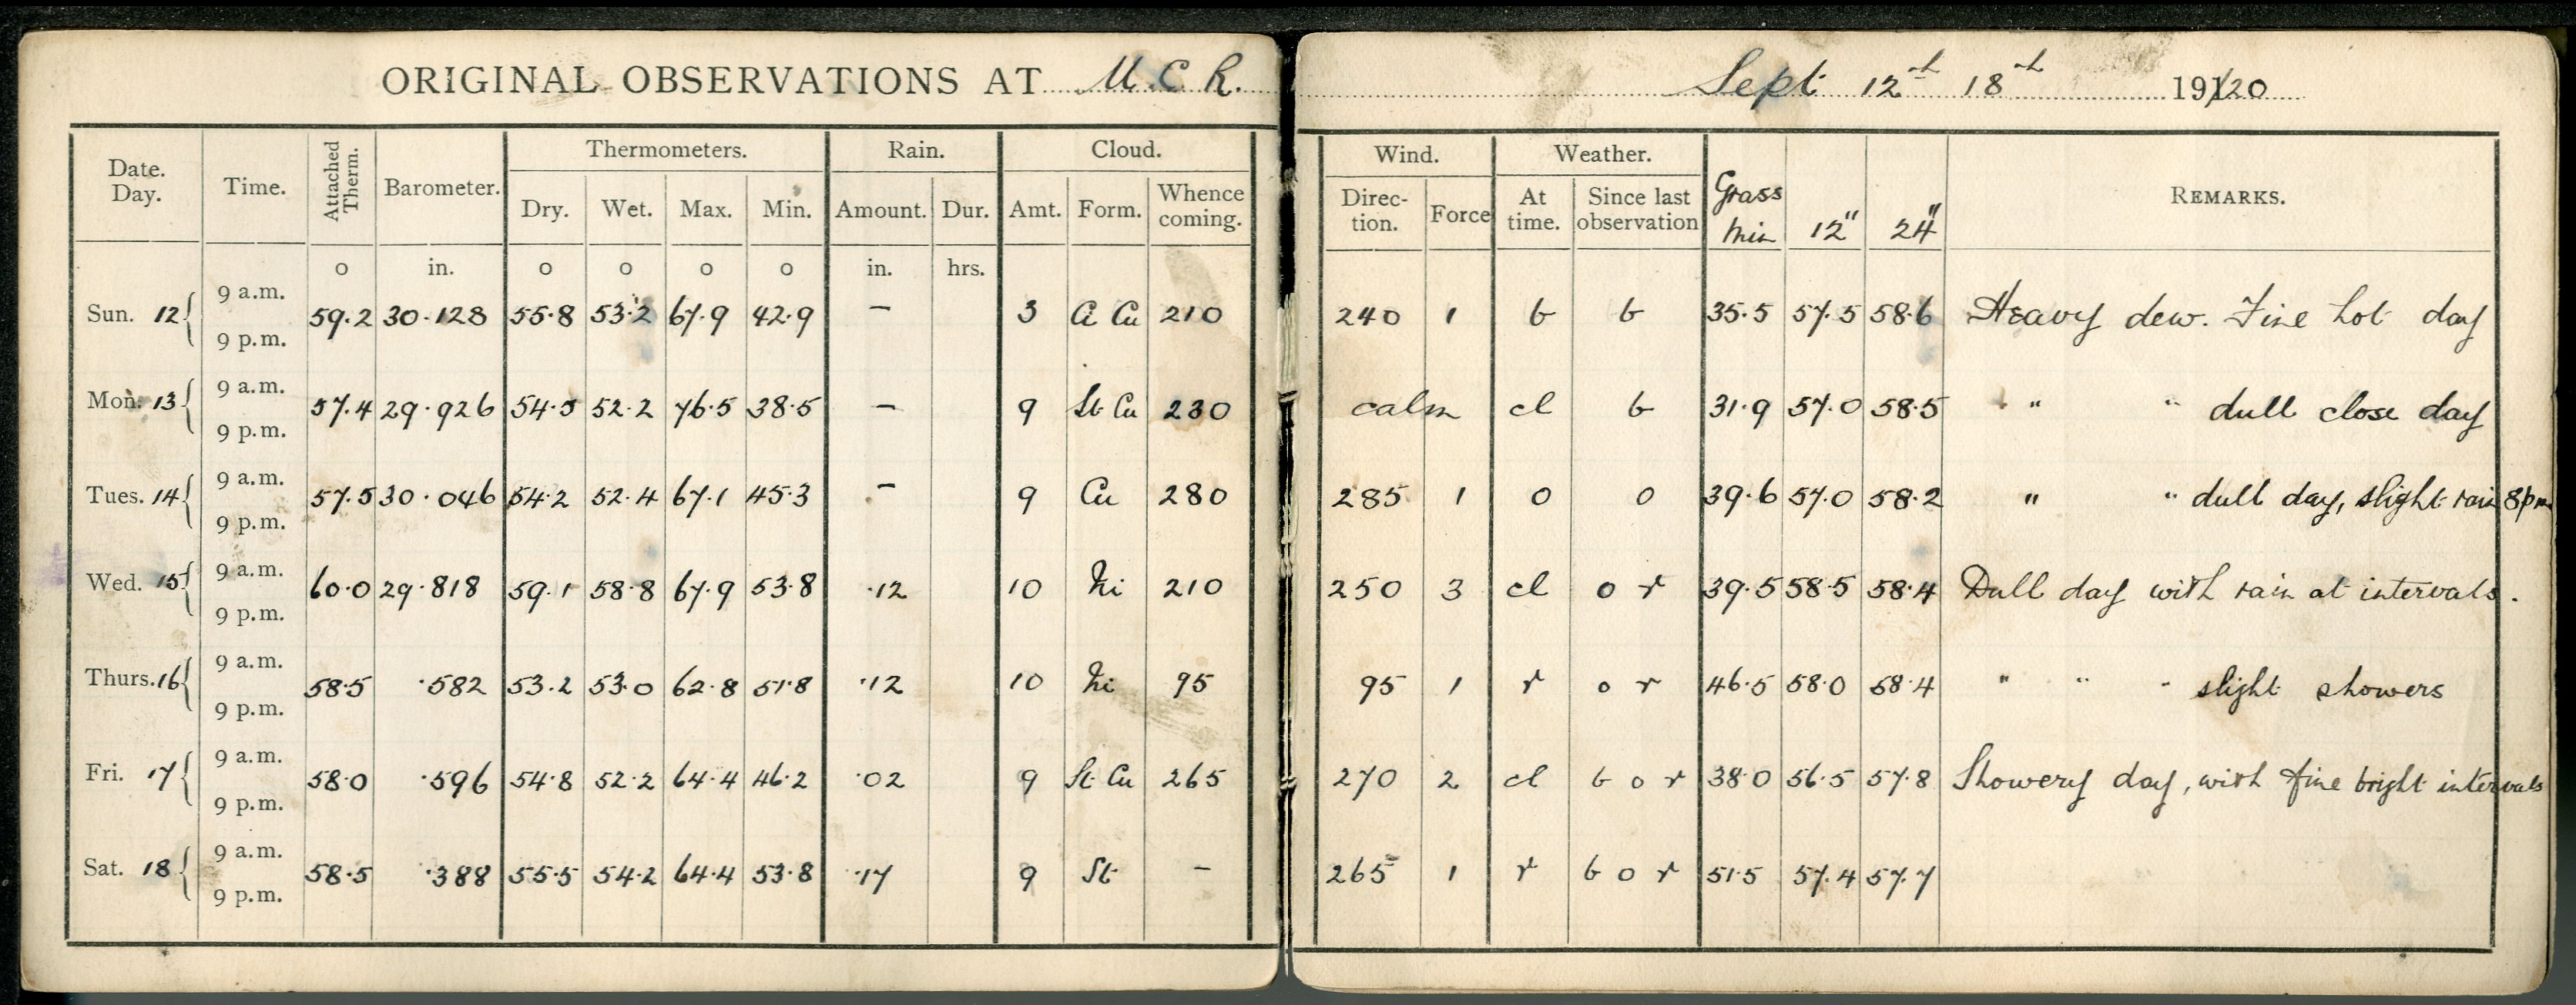 ORIGINAL OBSERVATIONS AT M.C.R. Sept 12th 18th 1920
Date. Day. Time. Attached Therm. Barometer. Thermometers. Rain. Cloud. Wind. Weather. Grass min 12" 24" REMARKS.
Dry. Wet. Max. Min. Amount. Dur. Amt. Form. Whence coming. Direction. Force At time. Since last observation
o in. o o o o in. hrs.
Sun. 12 9 a.m. 9 p.m. 59.2 30.128 55.8 53.2 67.9 42.9 — 3 Ci Cu 210 240 1 b b 35.5 57.5 58.6 Heavy dew. Fine hot day
Mon. 13 9 a.m. 9 p.m. 57.4 29.926 54.5 52.2 76.5 38.5 — 9 St Cu 230 calm cl b 31.9 57.0 58.5 " " dull close day
Tues. 14 9 a.m. 9 p.m. 57.5 30.046 54.2 52.4 67.1 45.3 — 9 Cu 280 285 1 o o 39.6 57.0 58.2 " " dull day, slight rain 8pm
Wed. 15 9 a.m. 9 p.m. 60.0 29.818 59.1 58.8 67.9 53.8 .12 10 Ni 210 250 3 cl o r 39.5 58.5 58.4 Dull day with rain at intervals.
Thurs. 16 9 a.m. 9 p.m. 58.5 .582 53.2 53.0 62.8 51.8 .12 10 Ni 95 95 1 r o r 46.5 58.0 58.4 " " " slight showers
Fri. 17 9 a.m. 9 p.m. 58.0 .596 54.8 52.2 64.4 46.2 .02 9 St Cu 265 270 2 cl b o r 38.0 56.5 57.8 Showery day, with fine bright intervals
Sat. 18 9 a.m. 9 p.m. 58.5 .388 55.5 54.2 64.4 53.8 .17 9 St — 265 1 r b o r 51.5 57.4 57.7